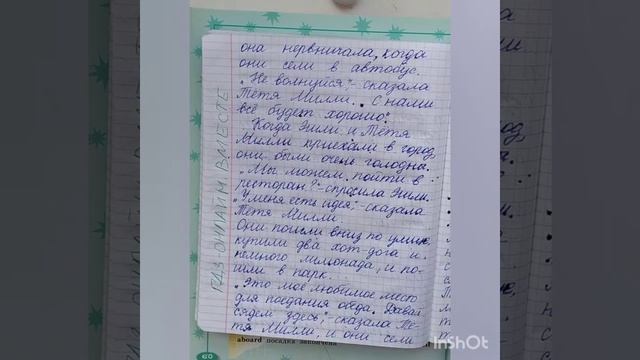 она нервничала, когда
они сели в автобус.
„Не волнуйся", - сказала
Тётя Милли. „С нами
всё будет хорошо".
Когда Эшли и Тётя
Милли приехали в город,
они были очень голодны.
„Мы можем пойти в
ресторан?" - спросила Эшли.
„У меня есть идея", - сказала
Тётя Милли.
Они пошли вниз по улице,
купили два хот-дога и
немного лимонада, и по-
шли в парк.
„Это моё любимое место
для поедания обеда. Давай
сядем здесь", - сказала Тё-
тя Милли, и они сели
ГДЗ ОНЛАЙН ВМЕСТЕ
60
aboard посадка закончена
InShOt